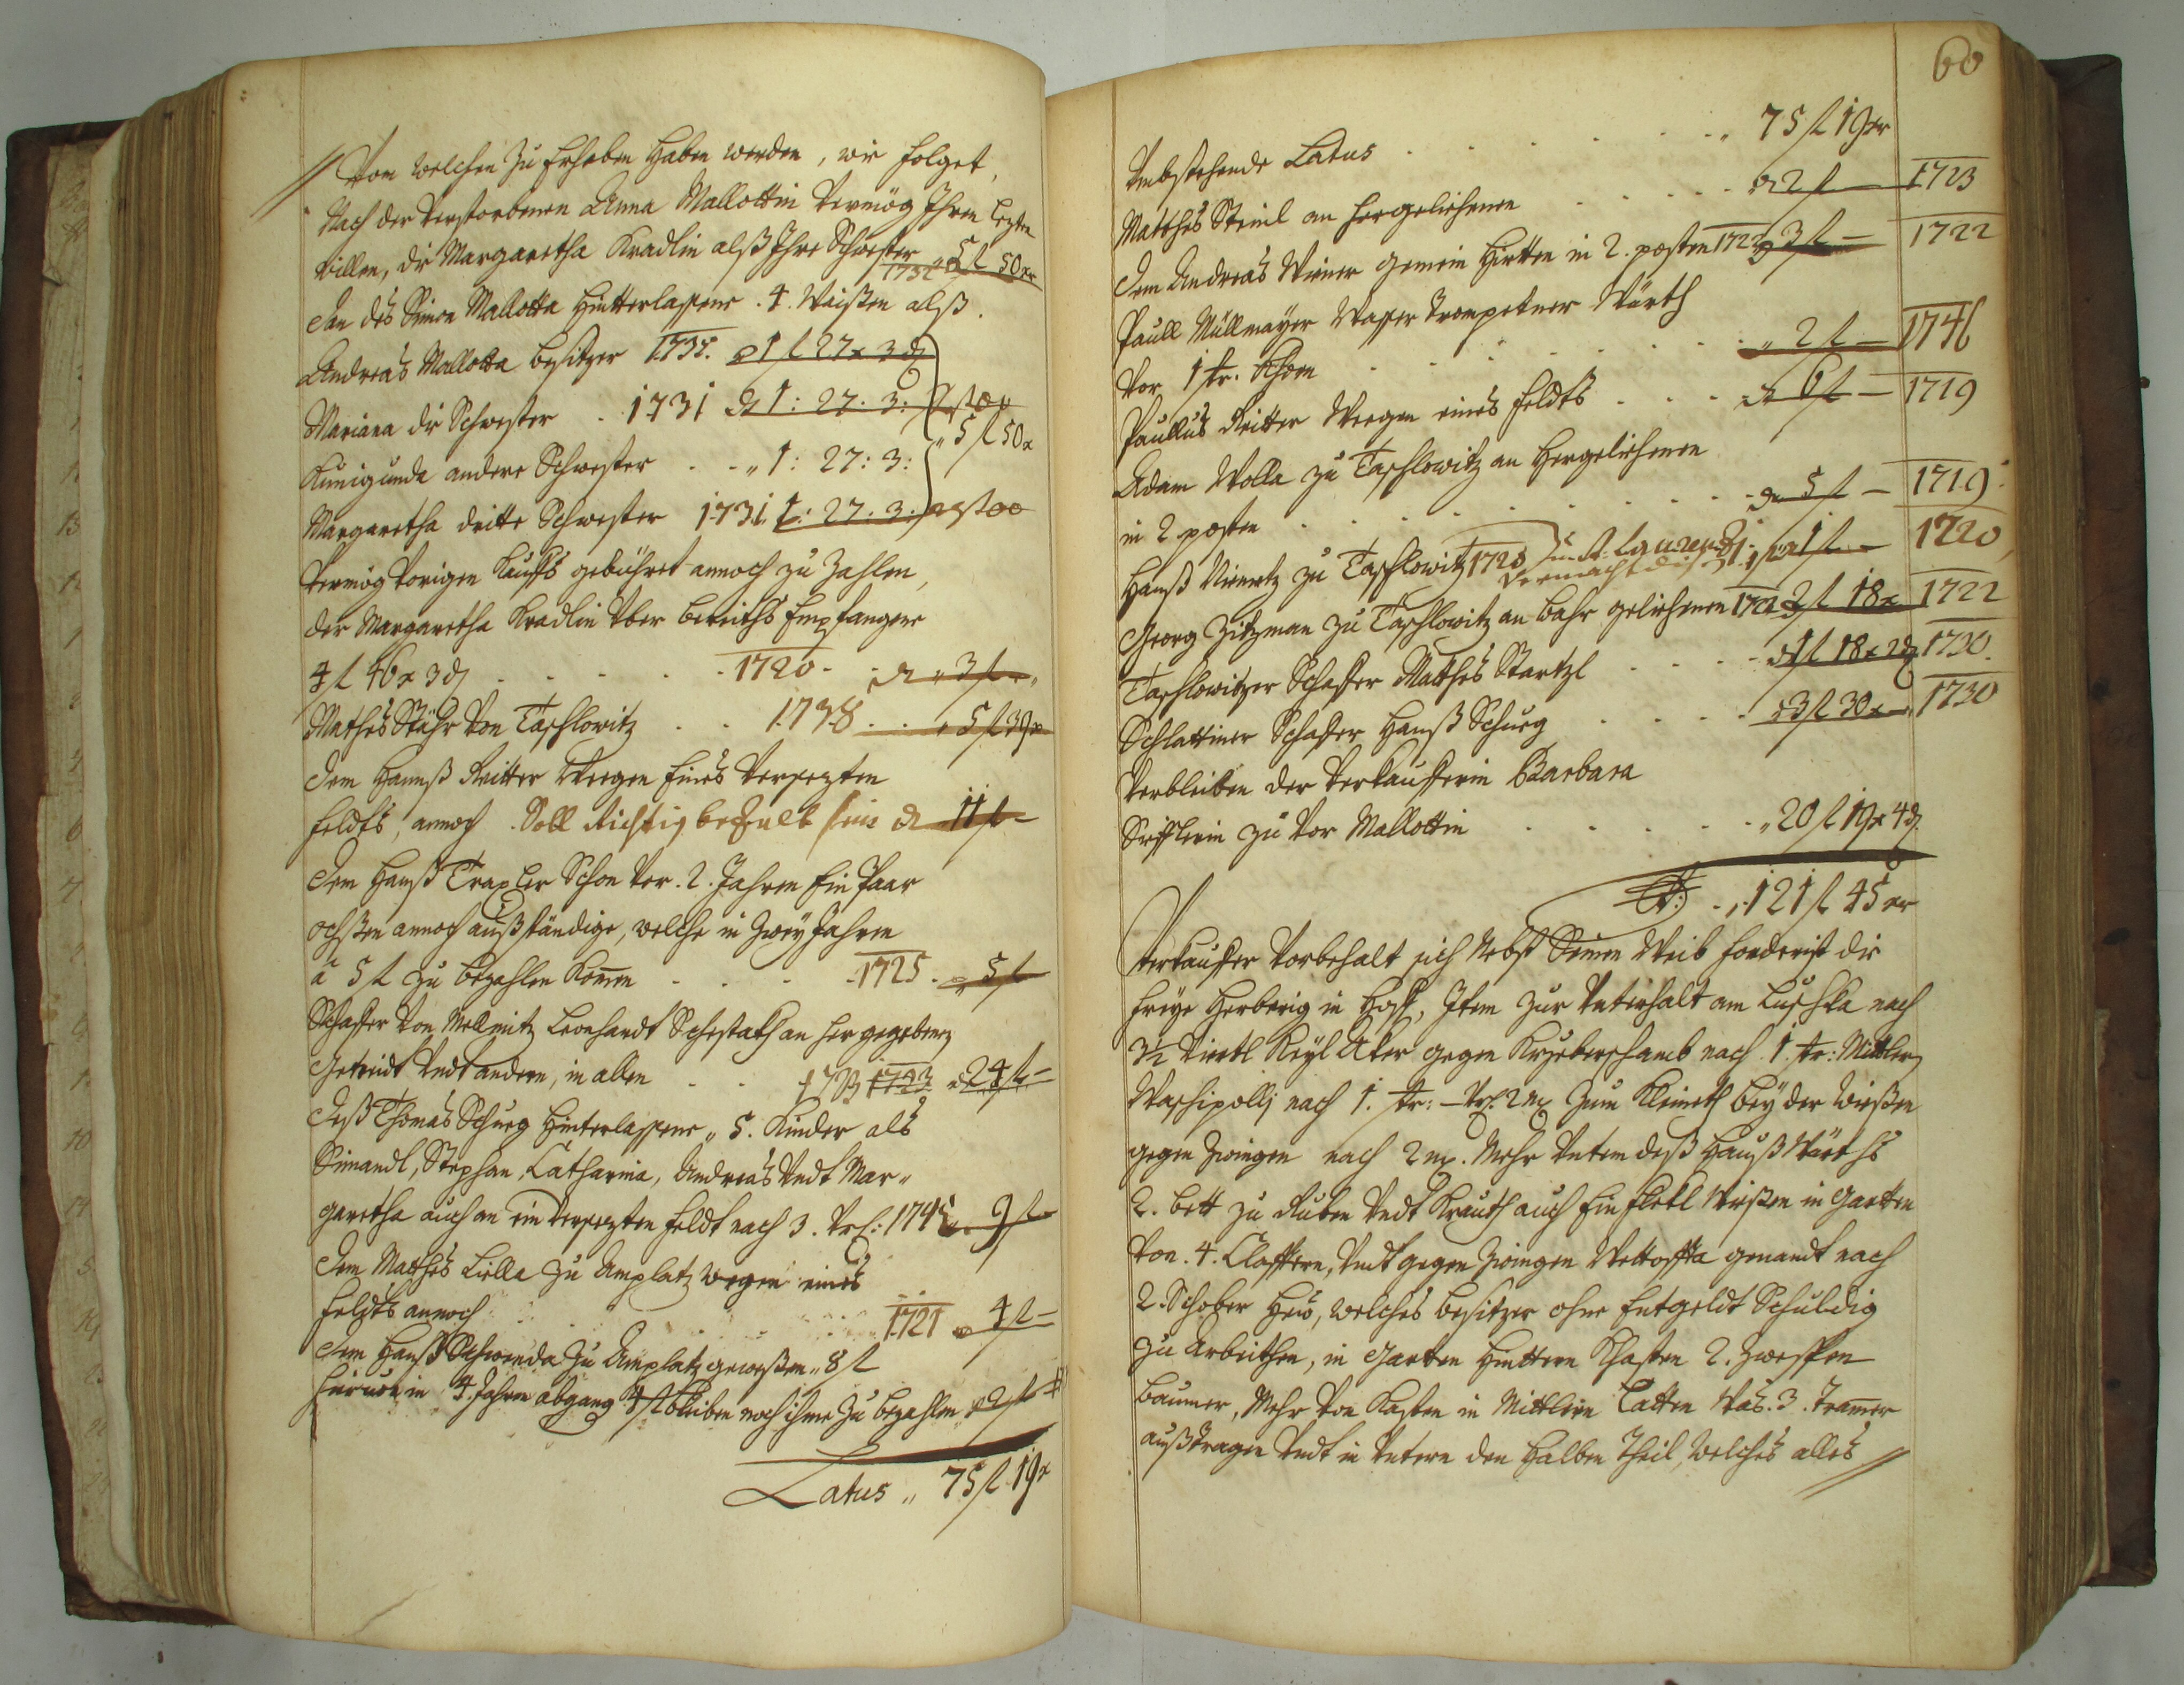 Von welchen zu erheben haben werden, wie folget,
Nach der verstorbenen Anna Mallottin vermög Ihren lezten
willen, die Margaretha Kradlin alß Ihre Schwester 1732 5 f 50 xr
Den des Simon Mallotta hinterlassene 4. Waißen alß.
Andreas Mallotta besitzer 1735. 1 f 27 x 3 d
Mariana die Schwester . 1731 1: 27: 3:
" 5 f 50 x
Kunigunda andere Schwester . - " 1: 27: 3:
Margaretha dritte Schwester 1731. 1: 27: 3:
Vermög vorigen Kauffs gebühret annoch zu zahlen,
der Margaretha Kradlin über bereiths Empfangene
4 f 46 x 3 d . . . . . 1720 - " 3 f
Mathes Stähr von Taschlowitz . . 1738 . . " 5 f 39 x
Dem Hannß Ritter Weegen Eines versezten
feldts, annoch . Soll Richtig bezalt sein 11 f -
Dem Hanß Traxler Schon vor . 2 . Jahren Ein Paar
ochßen annoch außständige, welche in zwey Jahren
à 5 f zu bezahlen komen . . . 1725 . 5 f
Schaffer von Mellnitz Leonhardt Schestakh an hergegebenen
Getreidt undt andern, in allen . . 1733 1723 24 f -
Deß Thomas Schurg hinterlassene " 5. Kinder als
Simandl, Stephan, Catharina, Andreas undt Mar-
garetha auch an ein versezten feldt nach 3. Vrl: 1745 9 f -
Dem Matthes Liella zu Amplatz wegen eines
feldts annoch . . . 1721 4 f -
Dem Hanß Schwenda zu Amplatz geweßen " 8 f
hieruon in 4. Jahren abgang 4 f bleiben noch ihme zu bezahlen 2 f
Latus " 75 f 19 x
60
Umbstehende Latus . . . . . " 75 f 19 xr
Matthes Steinl an hergeliehenen . . . . 2 f - 1723
Dem Andreas Wiener gemein Hirtten in 2. posten 1722 3 f - 1722
Paull Müllmayer Wasser Trompetner Würth
vor 1 str. Khorn . . . . . . " 2 f - 1746
Paullus Ritter Weegen eines feldts . . . 6 f - 1719
Adam Wolla zu Taschlowitz an hergeliehenen
in 2 posten . . . . . . . 5 f - 1719
Hanß Nimertz zu Taschlowitz 1720 S. Laurenzi 1 f - 1720
vermacht dise
Georg Zitzman zu Taschlowitz an bahr geliehenen 1722 2 f 18 x 1722
Taschlowitzer Schaffer Matthes Startzl . . . 1 f 18 x 2 d 1730
Schlattiner Schaffer Hanß Schurg . . . . 3 f 30 x - 1730
Verbleiben der Verkaufferin Barbara
zu vor Mallottin . . . . . " 20 f 19 x 4 d
" 121 f 45 xr
Verkauffer Vorbehalt sich Nebst Seinen Weib forderist die
freye Herberig in Hoff, Item zur unterhalt am Luschka nach
3½ Viertl Keyl Aker gegen nach 1. str: Mittlern
Waschipolly nach 1. str: - Vrl. 2 mz zum bey der wießen
gegen Zwingen nach 2 mz. Mehr unten deß Hauß Würths
2. bett zu Ruben undt Krauth auch ein flekl wießen in Garten
von . 4. Claffern, undt gegen Zwingen genandt nach
2. Schober Heü, welches besitzer ohne Entgeldt Schuldig
zu Arbeithen, in Garten hintern Khasten 2. Zwespen
baumer, Mehr von Kasten in Mittlern was . 3 . Tramer
außtragen undt in untern den halben Theil, welches alles